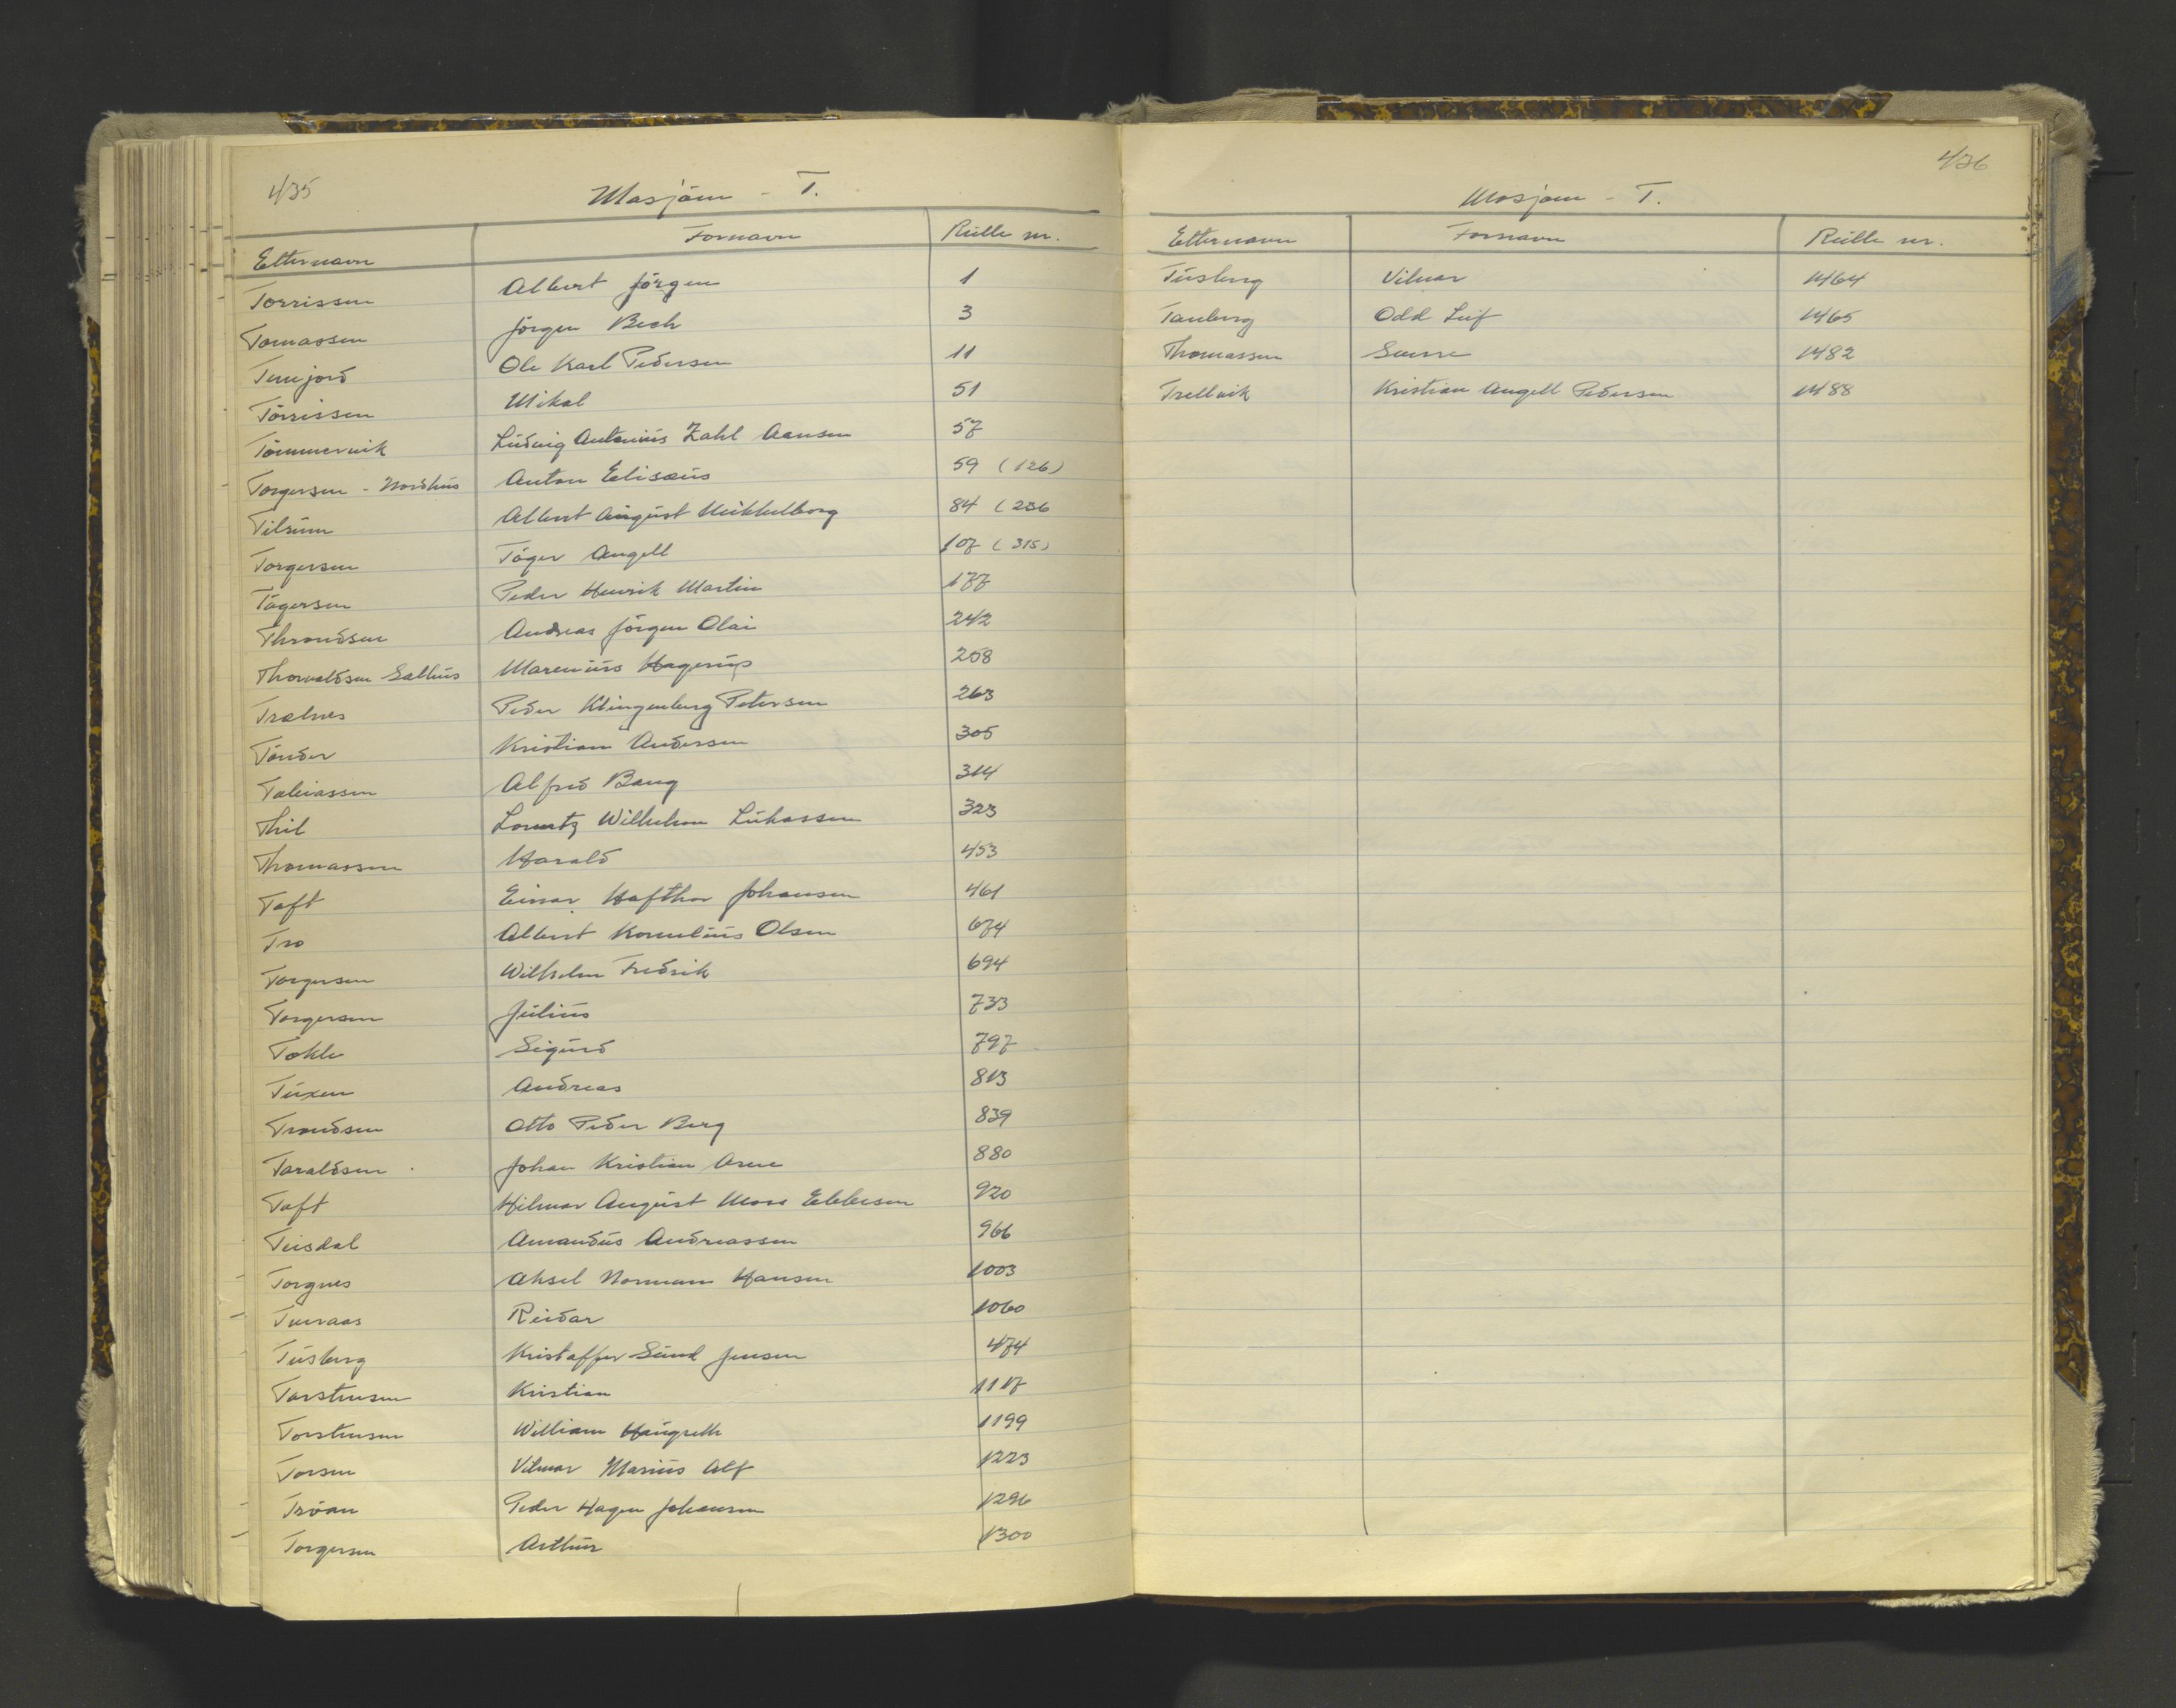 435
Mosjöen - T.
Etternavn Fornavn Rulle nr.
Torrissen Albert Jörgen 1
Tomassen Jörgen Bech 3
Tverjord Ole Karl Pedersen 11
Törrissen Mikal 51
Tömmervik Ludvig Antonius Zahl Aansen 57
Torgersen - Nordhus Anton Elisæus 59 (126)
Tilrum Albert August Meikkelborg 84 (236
Torgersen Töger Angell 107 (315)
Tögersen Peder Henrik Martin 177
Throndsen Andreas Jörgen Olai 242
Thorvaldsen Salhus Marenius Hagerup 258
Trælnes Peder Klingenberg Petersen 263
Tönder Kristian Andersen 305
Tobiassen Alfred Bang 314
Thil Lorentz Wilhelm Lukassen 323
Thomassen Harald 453
Toft Einar Hafthor Johansen 461
Tro Albert Kornelius Olsen 674
Torgersen Wilhelm Fredrik 694
Torgersen Julius 733
Tokle Sigurd 797
Tuxen Andreas 813
Trondsen Otto Peder Berg 839
Taraldsen Johan Kristian Arne 880
Toft Hilmar August Moss Ebbesen 920
Teisdal Amandus Andreassen 966
Torgnes Aksel Normann Hansen 1003
Tveraas Reidar 1060
Tusberg Kristoffer Sund Jensen 474
Torstensen Kristian 1117
Torstensen William Haugseth 1199
Torsen Vilmar Marius Alf 1223
Tröan Peder Hagen Johansen 1296
Torgersen Arthur 1300
436
Mosjöen - T.
Etternavn Fornavn Rulle nr.
Tusberg Vilmar 1464
Tauberg Odd Leif 1465
Thomassen Sverre 1482
Trellvik Kristian Angell Pedersen 1488